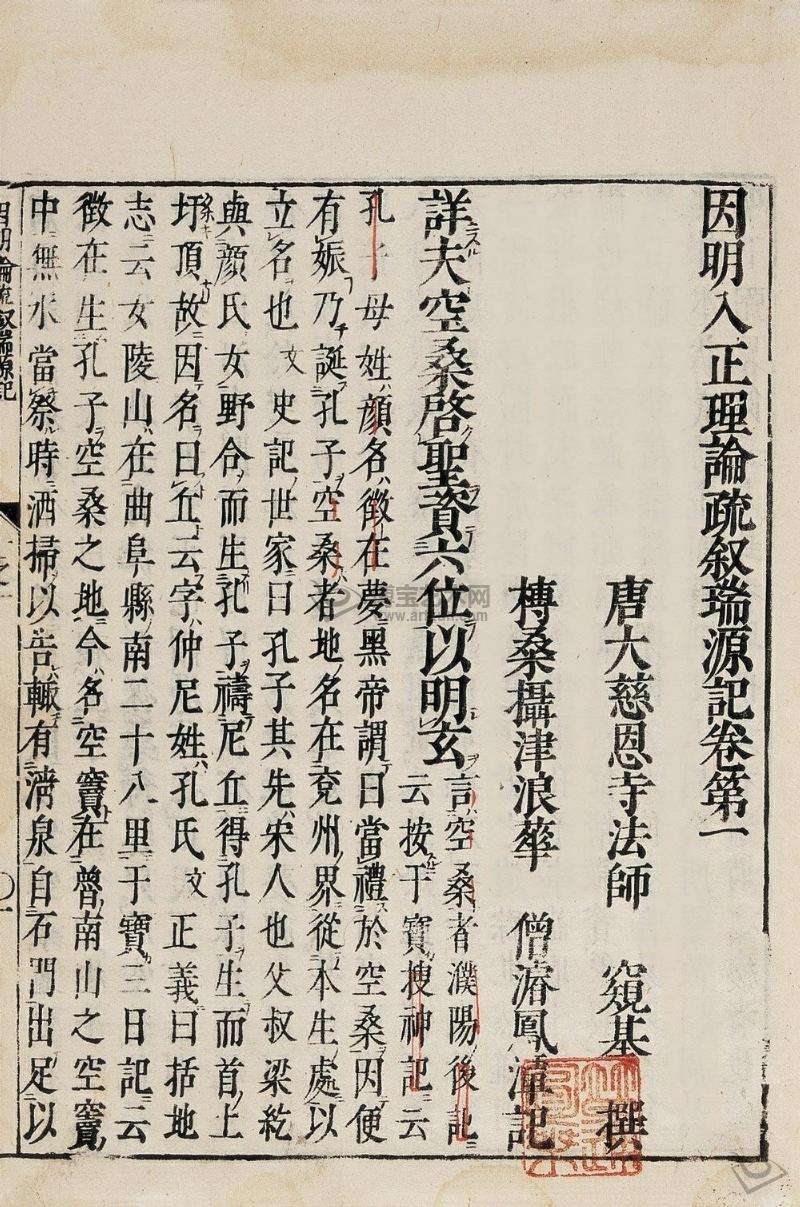 因明入正理論疏叙瑞源記卷第一
唐大慈恩寺法師　窺基　撰
槫桑攝津浪華　僧濬鳳潭記
詳夫空桑啓聖資六位以明玄
言空桑者濮陽後記
云按干寶搜神記云
孔子母姓顏名徵在夢黑帝謂曰當禮於空桑因便
有娠乃誕孔子空桑者地名在兗州界從本生處以
立名也文史記世家曰孔子其先宋人也父叔梁紇
與顏氏女野合而生孔子禱尼丘得孔子生而首上
圩頂故因名曰丘云字仲尼姓孔氏文正義曰括地
志云女陵山在曲阜縣南二十八里干寶三日記云
徵在生孔子空桑之地今名空竇在魯南山之空竇
中無水當祭時洒掃以告輙有清泉自石門出足以
因明論疏叙瑞源記